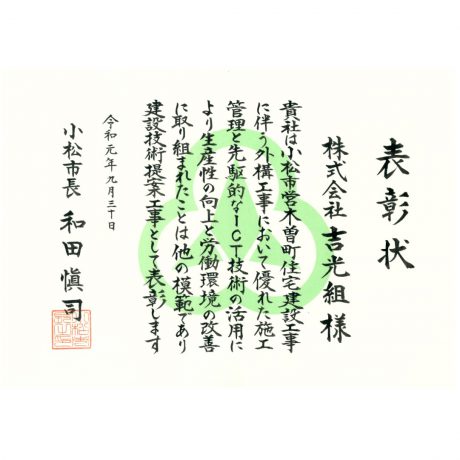 表彰状
株式会社 吉光組 様
貴社は小松市営木曽町住宅建設工事
に伴う外構工事において優れた施工
管理と先駆的なICT技術の活用に
より生産性の向上と労働環境の改善
に取り組まれたことは他の模範であり
建設技術提案工事として表彰します
令和元年九月三十日
小松市長 和田愼司